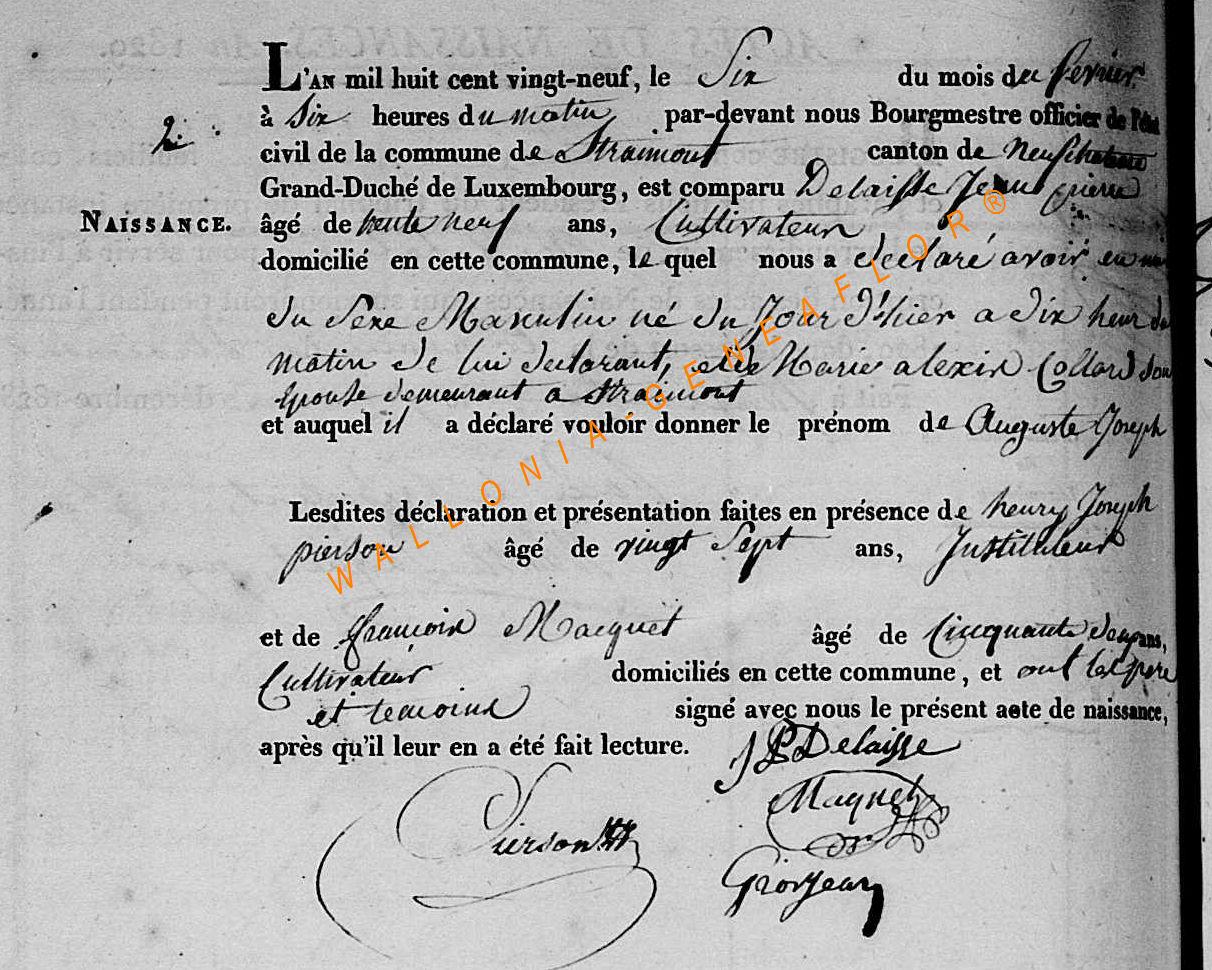 L'AN mil huit cent vingt-neuf, le Six du mois du fevrier
à Six heures du matin par-devant nous Bourgmestre officier de l'état
2.
civil de la commune de Straimont canton de Neufchateau
Grand-Duché de Luxembourg, est comparu Delaisse Jean pierre
NAISSANCE.
âgé de neuf ans, Cultivateur
domicilié en cette commune, le quel nous a declaré avoir eu un
du Sexe Masculin né du Jour d'hier a dix heur du
matin de lui declarant, et de Marie alexis Collard son
Epouse demeurant a Straimont
et auquel il a déclaré vouloir donner le prénom de Auguste Joseph
Lesdites déclaration et présentation faites en présence de henry Joseph
pierson âgé de vingt Sept ans, Instituteur
et de françois Macquet âgé de Cinquante deux ans,
Cultivateur domiciliés en cette commune, et ont les pere
et temoins signé avec nous le présent acte de naissance,
après qu'il leur en a été fait lecture.
JP Delaisse
Maquet
Pierson
Grosjean
WALLONIA-GENEAFLOR®